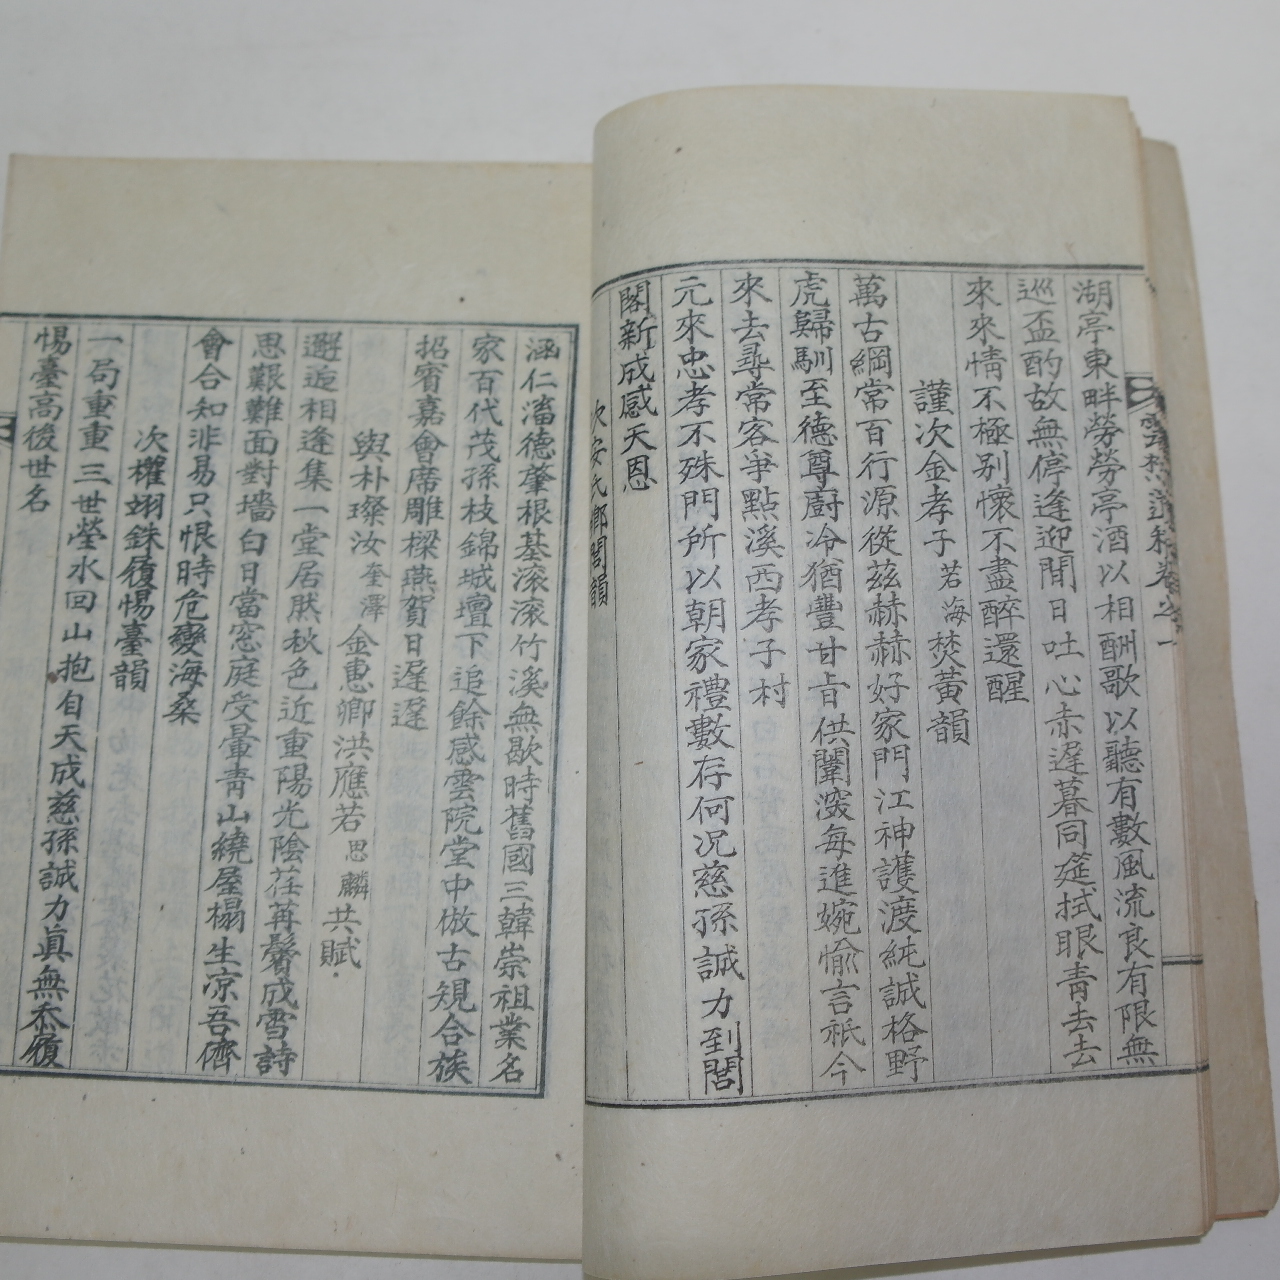 湖亭東畔勞勞亭酒以相酬歌以聽有數風流良有限無
巡盃酌故無停逢迎閒日吐心赤遲暮同筵拭眼靑去去
來來情不極別懷不盡醉還醒
謹次金孝子若海焚黃韻
萬古綱常百行源從玆赫赫好家門江神護渡純誠格野
虎歸馴至德尊廚冷猶豐甘旨供闈深每進婉愉言祇今
來去尋常客爭點溪西孝子村
元來忠孝不殊門所以朝家禮數存何況慈孫誠力到閤
閣新成感天恩
次安氏鄕閤韻
涵仁滀德肇根基滚滚竹溪無歇時舊國三韓崇祖業名
家百代茂孫枝錦城壇下追餘感雲院堂中倣古規合族
招賓嘉會席雕樑燕賀日遲遲
與朴璨汝奎澤金惠卿洪應若思麟共賦
邂逅相逢集一堂居然秋色近重陽光陰荏苒鬢成雪詩
思艱難面對墻白日當窓庭受暈靑山繞屋榻生凉吾儕
會合知非易只恨時危變海桑
次權翊銖履惕臺韻
一局重重三世塋水回山抱自天成慈孫誠力眞無忝履
惕臺高後世名